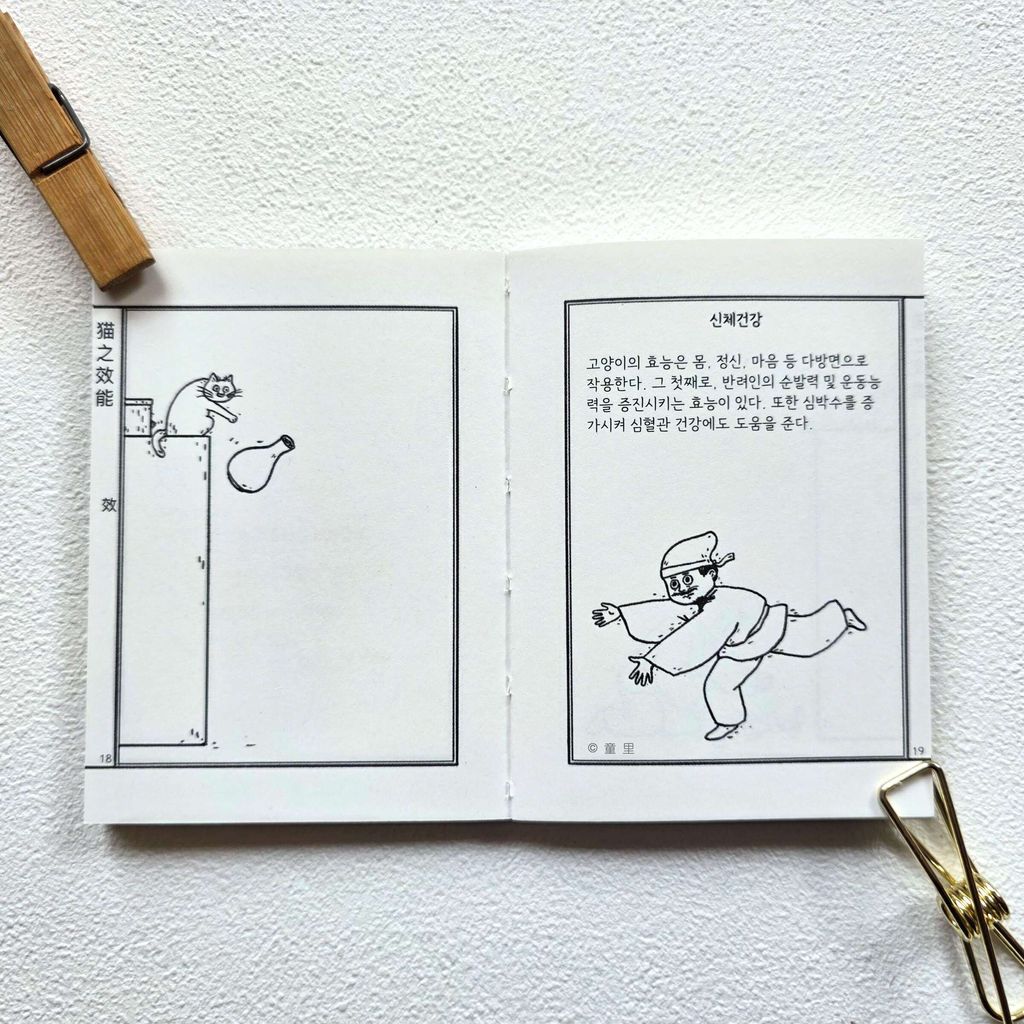 猫之效能
效
18
신체건강
고양이의 효능은 몸, 정신, 마음 등 다방면으로
작용한다. 그 첫째로, 반려인의 순발력 및 운동능
력을 증진시키는 효능이 있다. 또한 심박수를 증
가시켜 심혈관 건강에도 도움을 준다.
© 童里
19